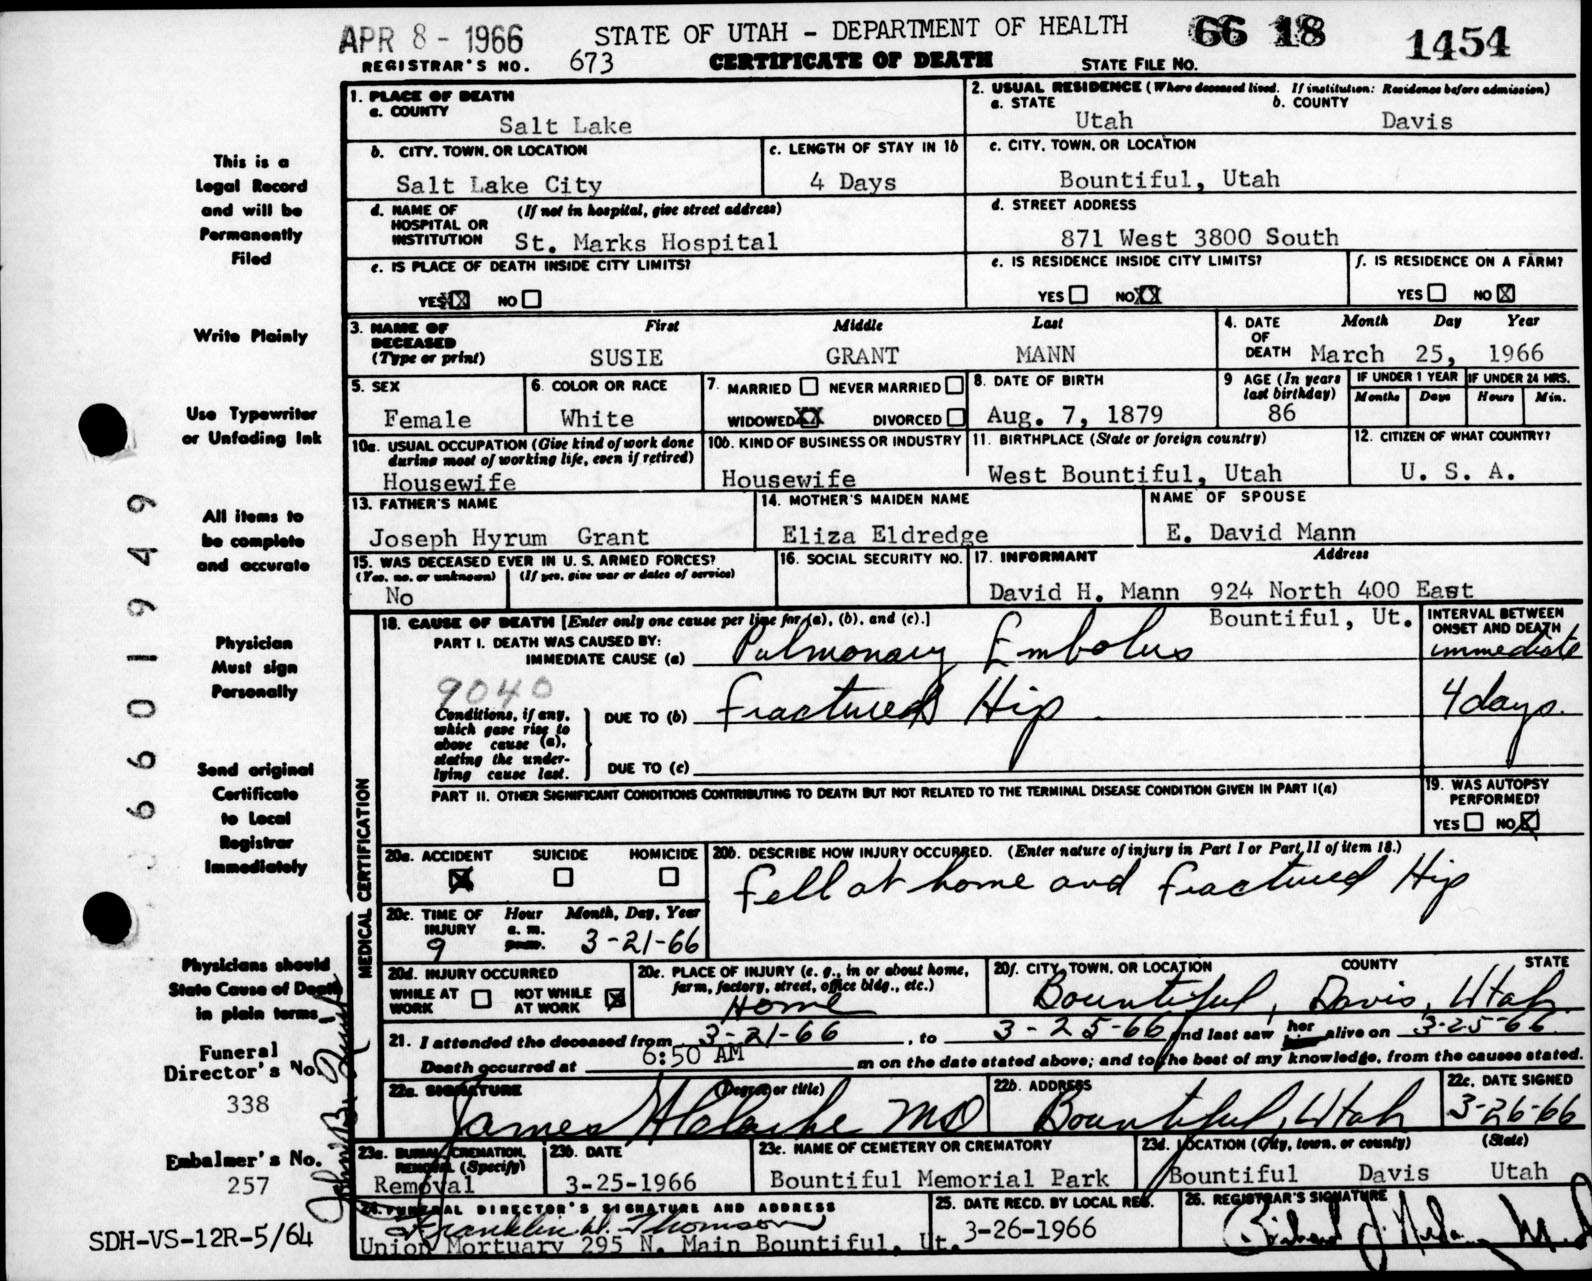 APR 8 - 1966 STATE OF UTAH - DEPARTMENT OF HEALTH 66 18 1454
REGISTRAR'S NO. 673 CERTIFICATE OF DEATH STATE FILE NO.
1. PLACE OF DEATH
a. COUNTY
Salt Lake
2. USUAL RESIDENCE (Where deceased lived. If institution: Residence before admission)
a. STATE b. COUNTY
Utah Davis
b. CITY, TOWN, OR LOCATION
Salt Lake City
c. LENGTH OF STAY IN 1b
4 Days
c. CITY, TOWN, OR LOCATION
Bountiful, Utah
d. NAME OF HOSPITAL OR INSTITUTION (If not in hospital, give street address)
St. Marks Hospital
d. STREET ADDRESS
871 West 3800 South
e. IS PLACE OF DEATH INSIDE CITY LIMITS?
YES X NO
e. IS RESIDENCE INSIDE CITY LIMITS?
YES NO XX
f. IS RESIDENCE ON A FARM?
YES NO X
3. NAME OF DECEASED (Type or print)
First Middle Last
SUSIE GRANT MANN
4. DATE OF DEATH Month Day Year
March 25, 1966
5. SEX
Female
6. COLOR OR RACE
White
7. MARRIED NEVER MARRIED
WIDOWED XX DIVORCED
8. DATE OF BIRTH
Aug. 7, 1879
9 AGE (In years last birthday)
86
IF UNDER 1 YEAR IF UNDER 24 HRS.
Months Days Hours Min.
10a. USUAL OCCUPATION (Give kind of work done during most of working life, even if retired)
Housewife
10b. KIND OF BUSINESS OR INDUSTRY
Housewife
11. BIRTHPLACE (State or foreign country)
West Bountiful, Utah
12. CITIZEN OF WHAT COUNTRY?
U. S. A.
13. FATHER'S NAME
Joseph Hyrum Grant
14. MOTHER'S MAIDEN NAME
Eliza Eldredge
NAME OF SPOUSE
E. David Mann
15. WAS DECEASED EVER IN U. S. ARMED FORCES?
(Yes, no, or unknown) (If yes, give war or dates of service)
No
16. SOCIAL SECURITY NO.
17. INFORMANT Address
David H. Mann 924 North 400 East
Bountiful, Ut.
18. CAUSE OF DEATH [Enter only one cause per line for (a), (b), and (c).]
INTERVAL BETWEEN ONSET AND DEATH
PART I. DEATH WAS CAUSED BY:
IMMEDIATE CAUSE (a) Pulmonary Embolus immediate
9040
Conditions, if any, which gave rise to above cause (a), stating the underlying cause last.
DUE TO (b) Fractured Hip 4 days.
DUE TO (c)
PART II. OTHER SIGNIFICANT CONDITIONS CONTRIBUTING TO DEATH BUT NOT RELATED TO THE TERMINAL DISEASE CONDITION GIVEN IN PART I(a)
19. WAS AUTOPSY PERFORMED?
YES NO X
20a. ACCIDENT SUICIDE HOMICIDE
X
20b. DESCRIBE HOW INJURY OCCURRED. (Enter nature of injury in Part I or Part II of item 18.)
Fell at home and fractured Hip
20c. TIME OF INJURY Hour Month, Day, Year
a. m.
p.m.
9 3-21-66
20d. INJURY OCCURRED
WHILE AT WORK NOT WHILE AT WORK X
20e. PLACE OF INJURY (e. g., in or about home, farm, factory, street, office bldg., etc.)
Home
20f. CITY, TOWN, OR LOCATION COUNTY STATE
Bountiful, Davis, Utah
21. I attended the deceased from 3-21-66, to 3-25-66 and last saw her alive on 3-25-66.
Death occurred at 6:50 AM m on the date stated above; and to the best of my knowledge, from the causes stated.
22a. SIGNATURE (Degree or title)
James MD
22b. ADDRESS
Bountiful, Utah
22c. DATE SIGNED
3-26-66
23a. BURIAL, CREMATION, REMOVAL (Specify)
Removal
23b. DATE
3-25-1966
23c. NAME OF CEMETERY OR CREMATORY
Bountiful Memorial Park
23d. LOCATION (City, town, or county) (State)
Bountiful Davis Utah
24. FUNERAL DIRECTOR'S SIGNATURE AND ADDRESS
Franklin W. Thomson
Union Mortuary 295 N. Main Bountiful, Ut.
25. DATE RECD. BY LOCAL REG.
3-26-1966
26. REGISTRAR'S SIGNATURE
MEDICAL CERTIFICATION
This is a
Legal Record
and will be
Permanently
Filed
Write Plainly
Use Typewriter
or Unfading Ink
All items to
be complete
and accurate
Physician
Must sign
Personally
Send original
Certificate
to Local
Registrar
Immediately
Physicians should
State Cause of Death
in plain terms
Funeral
Director's No.
338
Embalmer's No.
257
SDH-VS-12R-5/64
6601949